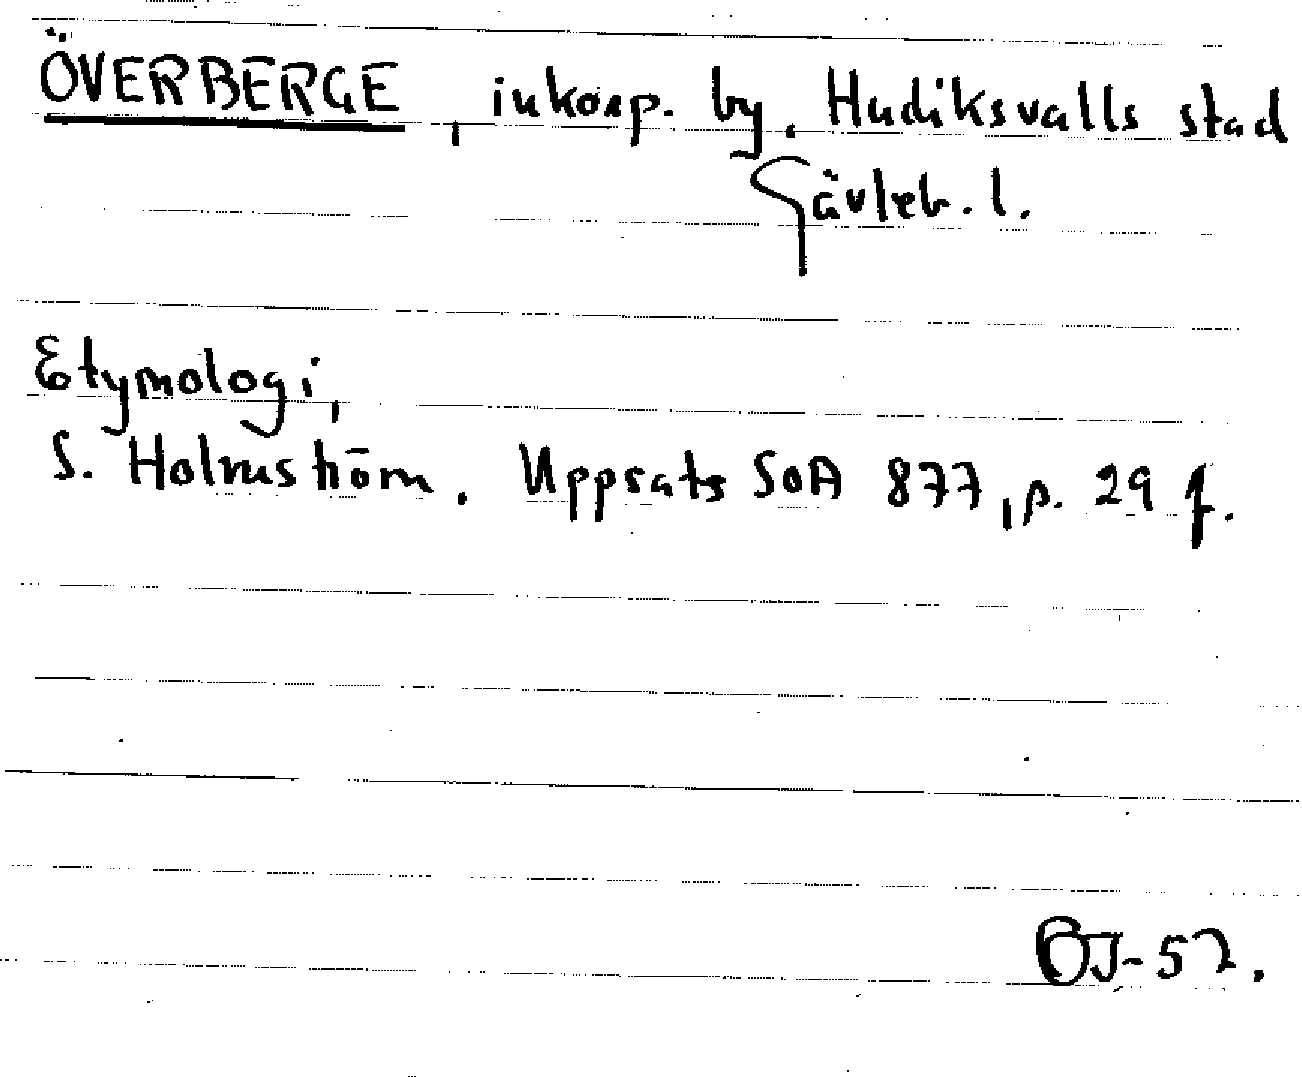 ÖVERBERGE, inkorp. by, Hudiksvalls stad
Gävleb. l.
Etymologi,
S. Holmström. Uppsats SOA 877, p. 29 f.
BJ-52.